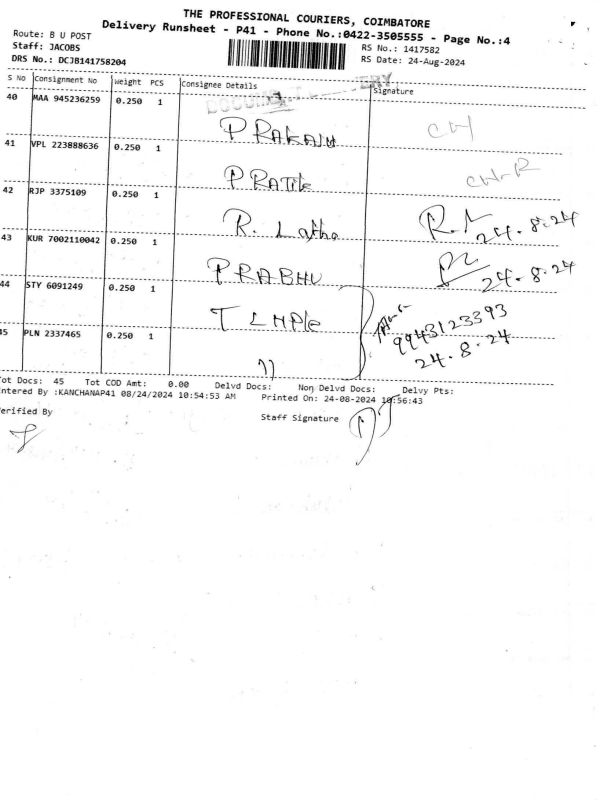 THE PROFESSIONAL COURIERS, COIMBATORE
Delivery Runsheet - P41 - Phone No.:0422-3505555 - Page No.:4
Route: B U POST
RS No.: 1417582
Staff: JACOBS
RS Date: 24-Aug-2024
DRS No.: DCJB141758204
S No Consignment No Weight PCS Consignee Details Signature
DOCUMENT DELIVERY
40 MAA 945236259 0.250 1
41 VPL 223888636 0.250 1
PRATIK
42 RJP 3375109 0.250 1
R. Latha 24.8.24
43 KUR 7002110042 0.250 1
PRABHU 24.8.24
44 STY 6091249 0.250 1
TEMPle 9943123393
24.8.24
45 PLN 2337465 0.250 1
11
Tot Docs: 45 Tot COD Amt: 0.00 Delvd Docs: Non Delvd Docs: Delvy Pts:
ntered By :KANCHANAP41 08/24/2024 10:54:53 AM Printed On: 24-08-2024 10:56:43
erified By Staff Signature